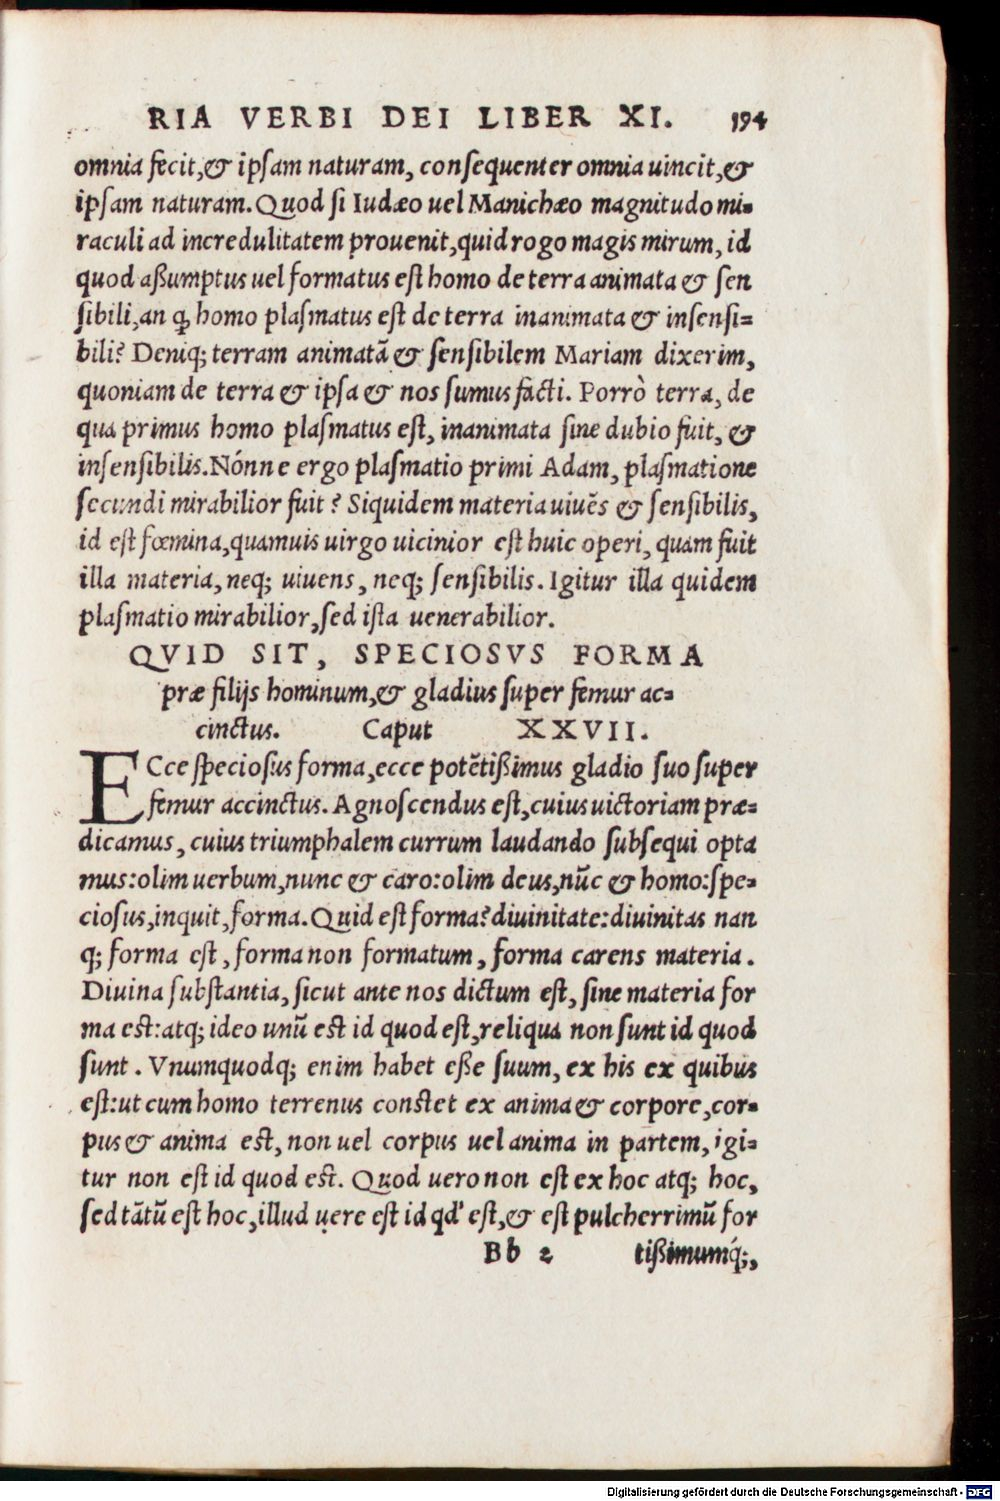 RIA VERBI DEI LIBER XI. 194
omnia fecit, & ipsam naturam, consequenter omnia uincit, &
ipsam naturam. Quod si Iudæo uel Manichæo magnitudo mi-
raculi ad incredulitatem prouenit, quid rogo magis mirum, id
quod aßumptus uel formatus est homo de terra animata & sen
sibili, an ꝙ homo plasmatus est de terra inanimata & insensi-
bili? Deniq; terram animatã & sensibilem Mariam dixerim,
quoniam de terra & ipsa & nos sumus facti. Porrò terra, de
qua primus homo plasmatus est, inanimata sine dubio fuit, &
insensibilis. Nónne ergo plasmatio primi Adam, plasmatione
secundi mirabilior fuit? Siquidem materia uiuẽs & sensibilis,
id est fœmina, quamuis uirgo uicinior est huic operi, quam fuit
illa materia, neq; uiuens, neq; sensibilis. Igitur illa quidem
plasmatio mirabilior, sed ista uenerabilior.
QVID SIT, SPECIOSVS FORMA
præ filijs hominum, & gladius super femur ac-
cinctus. Caput XXVII.
ECce speciosus forma, ecce potẽtißimus gladio suo super
femur accinctus. Agnoscendus est, cuius uictoriam præ-
dicamus, cuius triumphalem currum laudando subsequi opta
mus: olim uerbum, nunc & caro: olim deus, nũc & homo: spe-
ciosus, inquit, forma. Quid est forma? diuinitate: diuinitas nan
q; forma est, forma non formatum, forma carens materia.
Diuina substantia, sicut ante nos dictum est, sine materia for
ma est: atq; ideo unũ est id quod est, reliqua non sunt id quod
sunt. Vnumquodq; enim habet eße suum, ex his ex quibus
est: ut cum homo terrenus constet ex anima & corpore, cor-
pus & anima est, non uel corpus uel anima in partem, igi-
tur non est id quod est. Quod uero non est ex hoc atq; hoc,
sed tãtũ est hoc, illud uere est id qd' est, & est pulcherrimũ for
Bb 2 tißimumq́;,
Digitalisierung gefördert durch die Deutsche Forschungsgemeinschaft - DFG